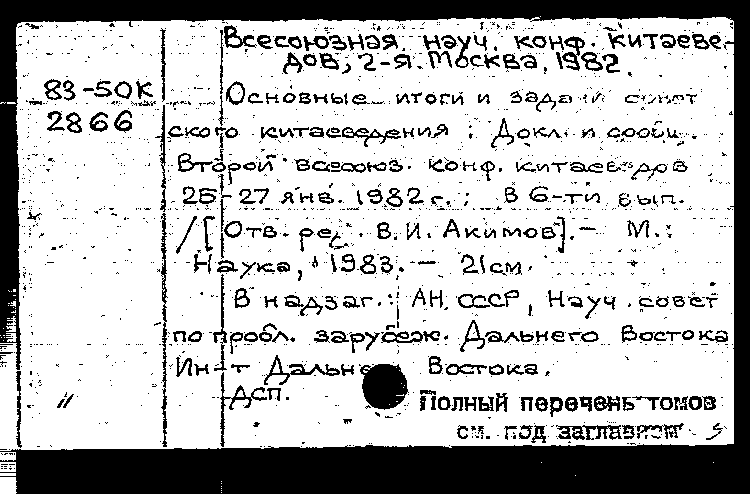 Всесоюзная науч. конф. китаеве-
дов, 2-я. Москва, 1982.
83-50К
2866
Основные итоги и задачи совет
ского китаеведения : Докл. и сообщ.
Второй всесоюз. конф. китаеведов
25-27 янв. 1982 г. ; В 6-ти вып.
/ [Отв. ред. В.И. Акимов]. - М. :
Наука, 1983. - 21см.
В надзаг. : АН СССР, Науч. совет
по пробл. зарубеж. Дальнего Востока
Ин-т Дальнего Востока.
ДСП.
Полный перечень томов
см. под заглавием